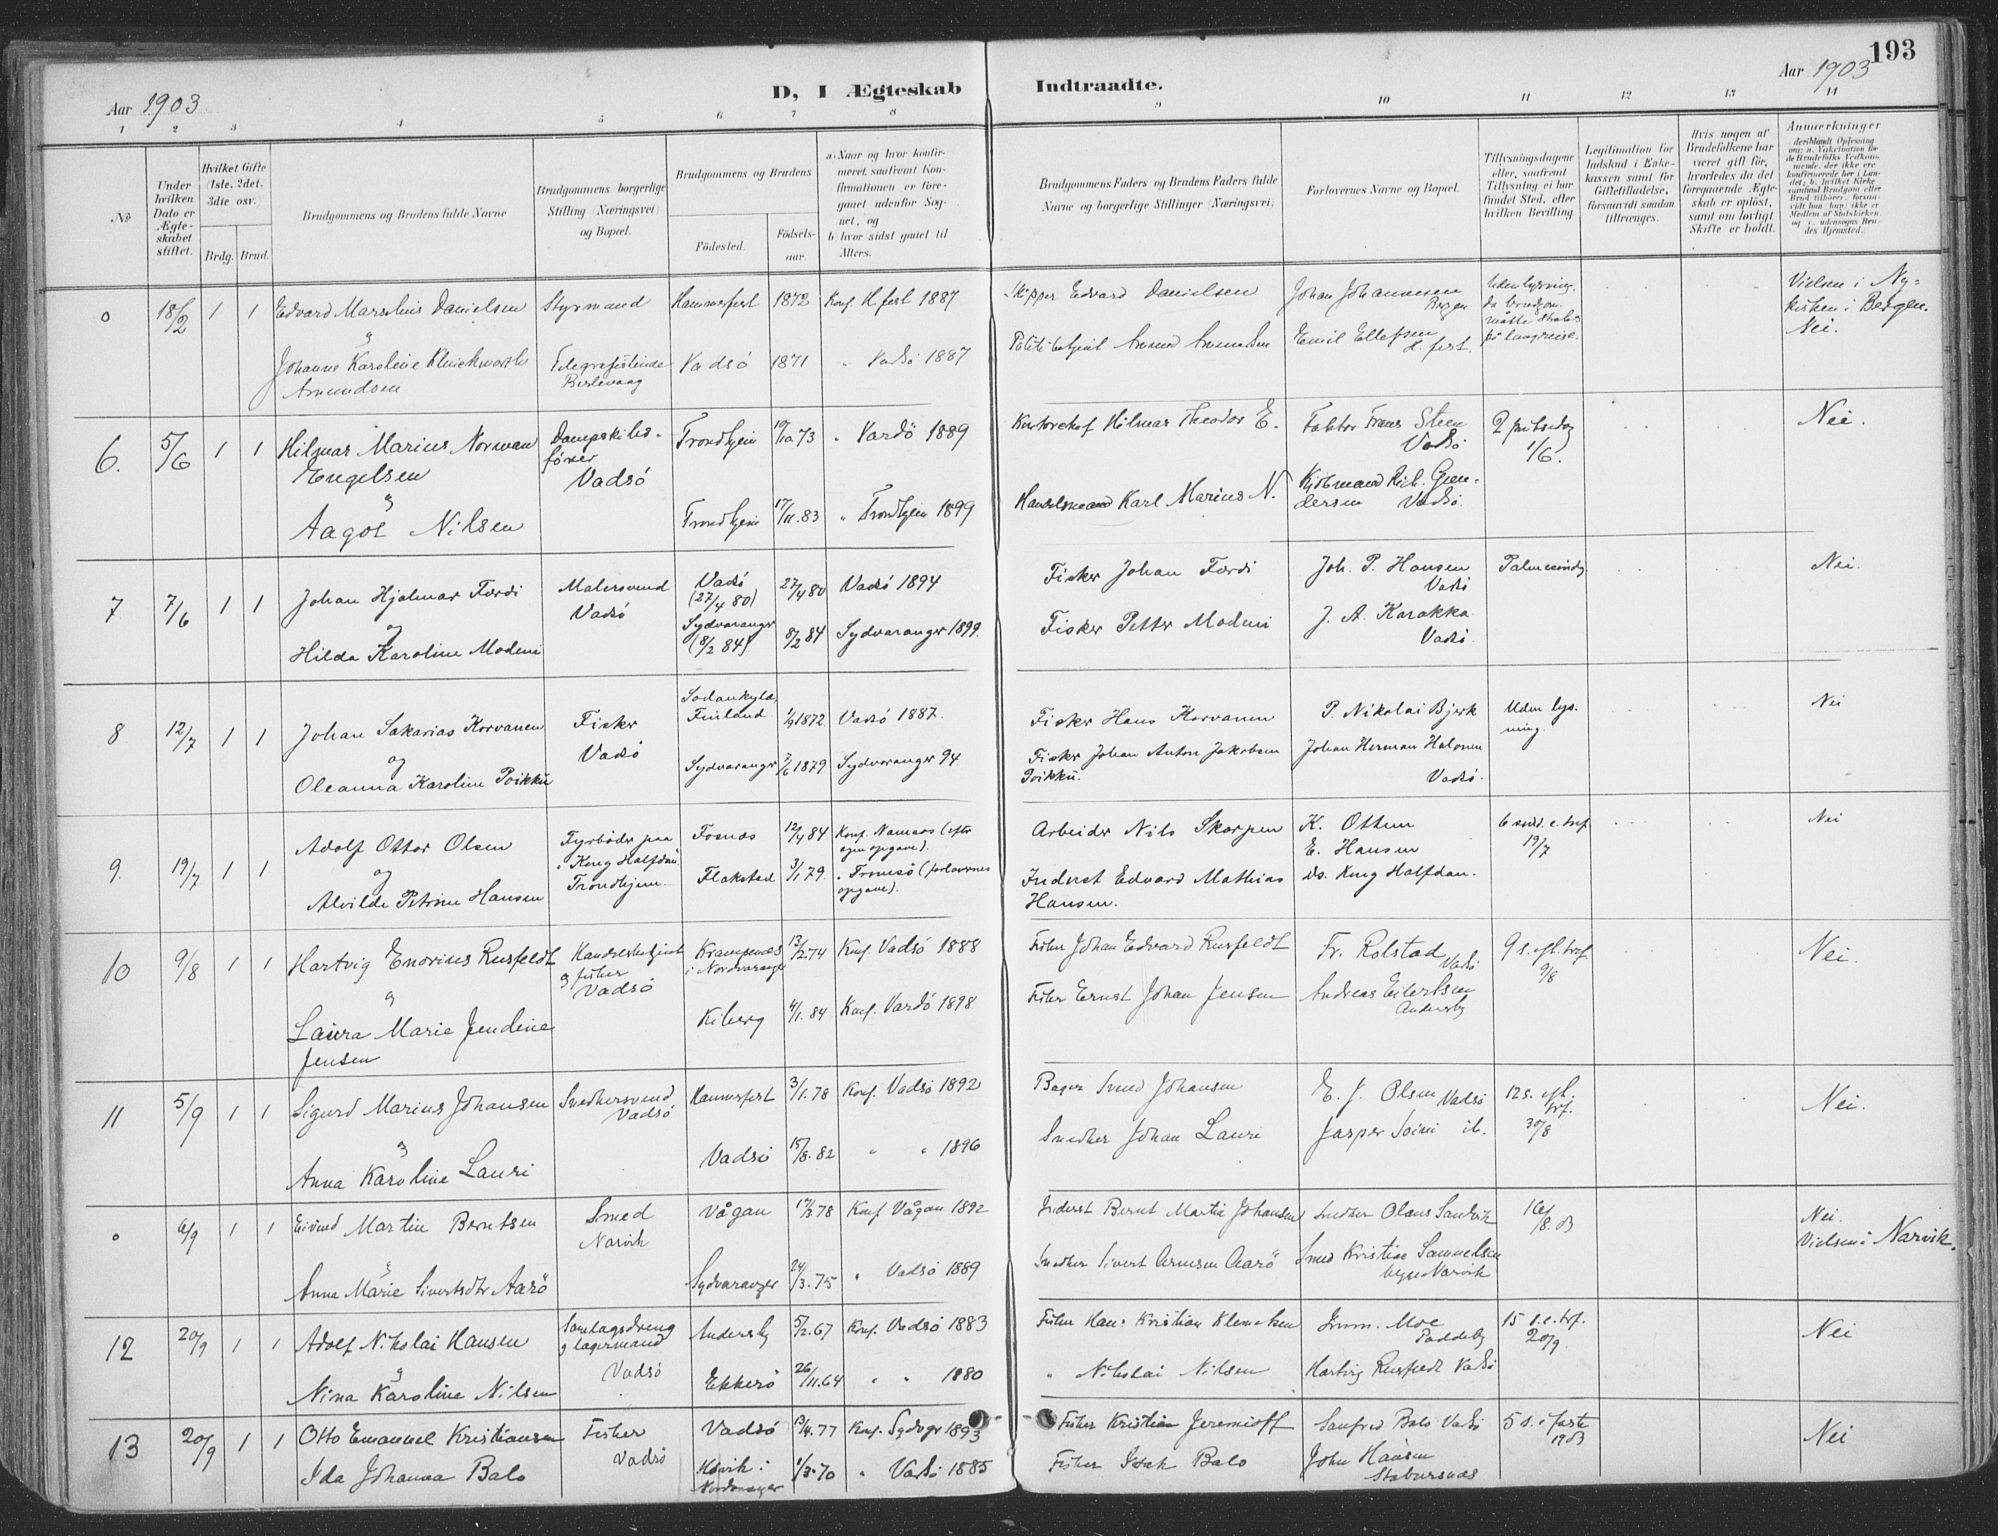 193
Aar 1903
D, I Ægteskab Indtraadte.
Aar 1903
1 2 3 4 5 6 7 8 9 10 11 12 13 14
No
Under hvilken Dato er Ægteskabet stiftet.
Hvilket Gifte (1ste, 2det, 3die osv.)
Brdg. Brud.
Brudgommens og Brudens fulde Navne
Brudgommens borgerlige Stilling (Næringsvei) og Bopæl.
Brudgommens og Brudens
Födested. Födselsaar.
a) Naar og hvor konfirmeret, saafremt Konfirmationen er foregaaet udenfor Sognet, og b) hvor sidst gaaet til Alters.
Brudgommens Faders og Brudens Faders fulde Navne og borgerlige Stillinger (Næringsvei).
Forlovernes Navne og Bopæl.
Tillysningsdagene eller, saafremt Tillysning ei har fundet Sted, efter hvilken Bevilling.
Legitimation for Indskud i Enkekassen samt for Giftetilladelse, forsaavidt saadan tiltrænges.
Hvis nogen af Brudefolkene har været gift för, hvorledes da det foregaaende Ægteskab er oplöst, samt om lovligt Skifte er holdt.
Anmærkninger
0 18/2 1 1 Edvard Marselius Danielsen Styrmand Hammerfest 1872 Konf. H.fest 1887 Skipper Edvard Danielsen Johan Johannesen Bergen Uden lysning, da brudgom. måtte på langreise. Vielsen i Nykirken i Bergen. Nei.
Johanne Karoline Amundsen Telegrafistinde Berlevaag Vadsö 1871 " Vadsö 1887 Politibetjent Emil Ellefsen H.fest.
6. 5/6 1 1 Hilmar Marius Norman Engelsen Dampskibsförer Vadsö Trondhjem 10/10 73 " Vardö 1889 Kontorchef Hilmar Theodor E. Faktor Frans Steen Vadsö 2 pintsedag 1/6. Nei.
Aagot Nilsen Trondhjem 17/11.83 " Trondhjem 1899 Handelsmand Karl Marius N. Kjöbmand Rich. Gundersen Vadsö.
7 7/6 1 1 Johan Hjalmar Færdi Malersvend Vadsö Vadsö (27/4 80) 27/4 80 Vadsö 1894 Fisker Johan Færdi Joh. P. Hansen Vadsö Palmesöndag Nei.
og
Hilda Karoline Modeni Sydvaranger (8/2 84) 8/2 84 Sydvaranger 1899. Fisker Petter Modeni J. A. Karakka Vadsö.
8 12/7 1 1 Johan Sakarias Korvanen Fisker Vadsö Sodankylä, Finland 1/9 1872 Vadsö 1887. Fisker Hans Korvanen P. Nikolai Bjerk Uden lysning. Nei
og
Oleanna Karoline Poikkü Sydvaranger 7/6 1879 Sydvaranger 94 Fisker Johan Anton Jakobsen Poikkü. Johan Herman Halonen Vadsö.
9. 19/7 1 1 Adolf Ottar Olsen Fyrböder paa "Kong Halfdan" Trondhjem. Fosnæs 12/4 84 Konf. Namsos (efter egen opgave). Arbeider Nils Skorpen K. Ottem 6 sönd. e. tref 19/7 Nei
og
Alvilde Petrine Hansen Flakstad 3/1 79. " Tromsö (forlovernes opgave). Inderst Edvard Mathias Hansen. E. Hansen Ds. Kong Halfdan.
10 9/8 1 1 Hartvig Enorius Rusfeldt Handelsbetjent og fisker Vadsö Krampenæs i Nordvaranger 13/2.74 Konf. Vadsö 1888 Fisker Johan Edvard Rusfeldt Fr. Rolstad Vadsö 9 s. eft. tref 9/8 Nei.
Laura Marie Jendine Jensen Kiberg 4/1. 84 Konf. Vardö 1898 Fisker Ernst Johan Jensen Andreas Eilertsen Andersby
11 5/9 1 1 Sigurd Marius Johansen Snedkersvend Vadsö Hammerfest 3/1.78 Konf. Vadsö 1892 Bager Johansen E. J. Olsen Vadsö 12 s. eft. tref. 30/8 Nei.
Anna Karoline Lauri Vadsö 15/8.82 " " 1896 Snedker Johan Lauri Jasper Soini ib.
0 6/9 1 1 Eivind Martin Berntsen Smed Narvik Vågan 17/3 78 Konf Vågan 1892 Inderst Bernt Martin Johansen Snedker Olaus Sandvik 16/8.03 Nei. Vielsen i Narvik.
Anna Marie Sivertsdtr Aarö Sydvaranger 24/3.75 " Vadsö 1889 Snedker Sivert Arnesen Aarö Smed Kristian Samuelsen begge Narvik
12 20/9 1 1 Adolf Nikolai Hansen Samlagsdreng og lagermand Vadsö Andersby 5/2.67 Konf. Vadsö 1883 Fisker Hans Kristian Klemetsen Imm. Moe Paddeby 15 s. e. tref. 20/9. Nei
Nina Karoline Nilsen Ekkerö 26/11.64 " " 1880 " Nikolai Nilsen Hartvig Rusfeldt Vadsö
13 20/9 1 1 Otto Emanuel Kristiansen Fisker Vadsö Vadsö 13/4.77 Konf. Sydvgr 1893 Fisker Kristian Jeremioff Sanfred Balo Vadsö 5 s. i faste 1903 Nei
Ida Johanna Balo i Nordvaranger 1/3.70 " Vadsö 1885 Fisker Isak Balo John Hansen Stabursnæs